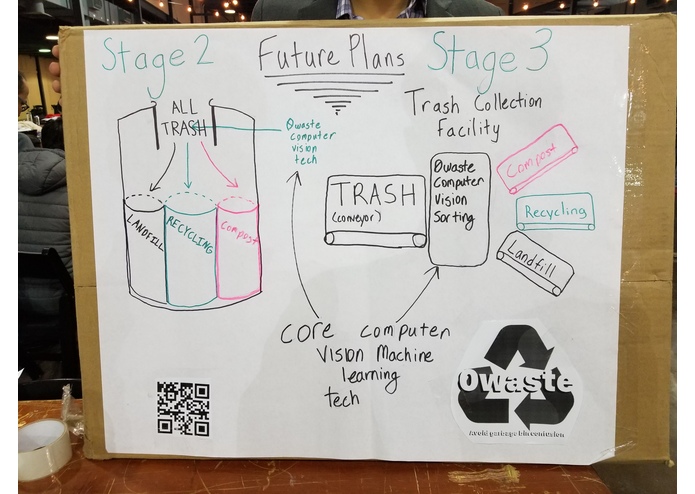 Future Plans
Stage 2
ALL
TRASH
0waste
computer
vision
tech
LANDFILL
RECYCLING
Compost
Stage 3
Trash Collection
Facility
TRASH
(conveyor)
0waste
Computer
Vision
Sorting
Compost
Recycling
Landfill
core computer
vision Machine
learning
tech
0waste
Avoid garbage bin confusion